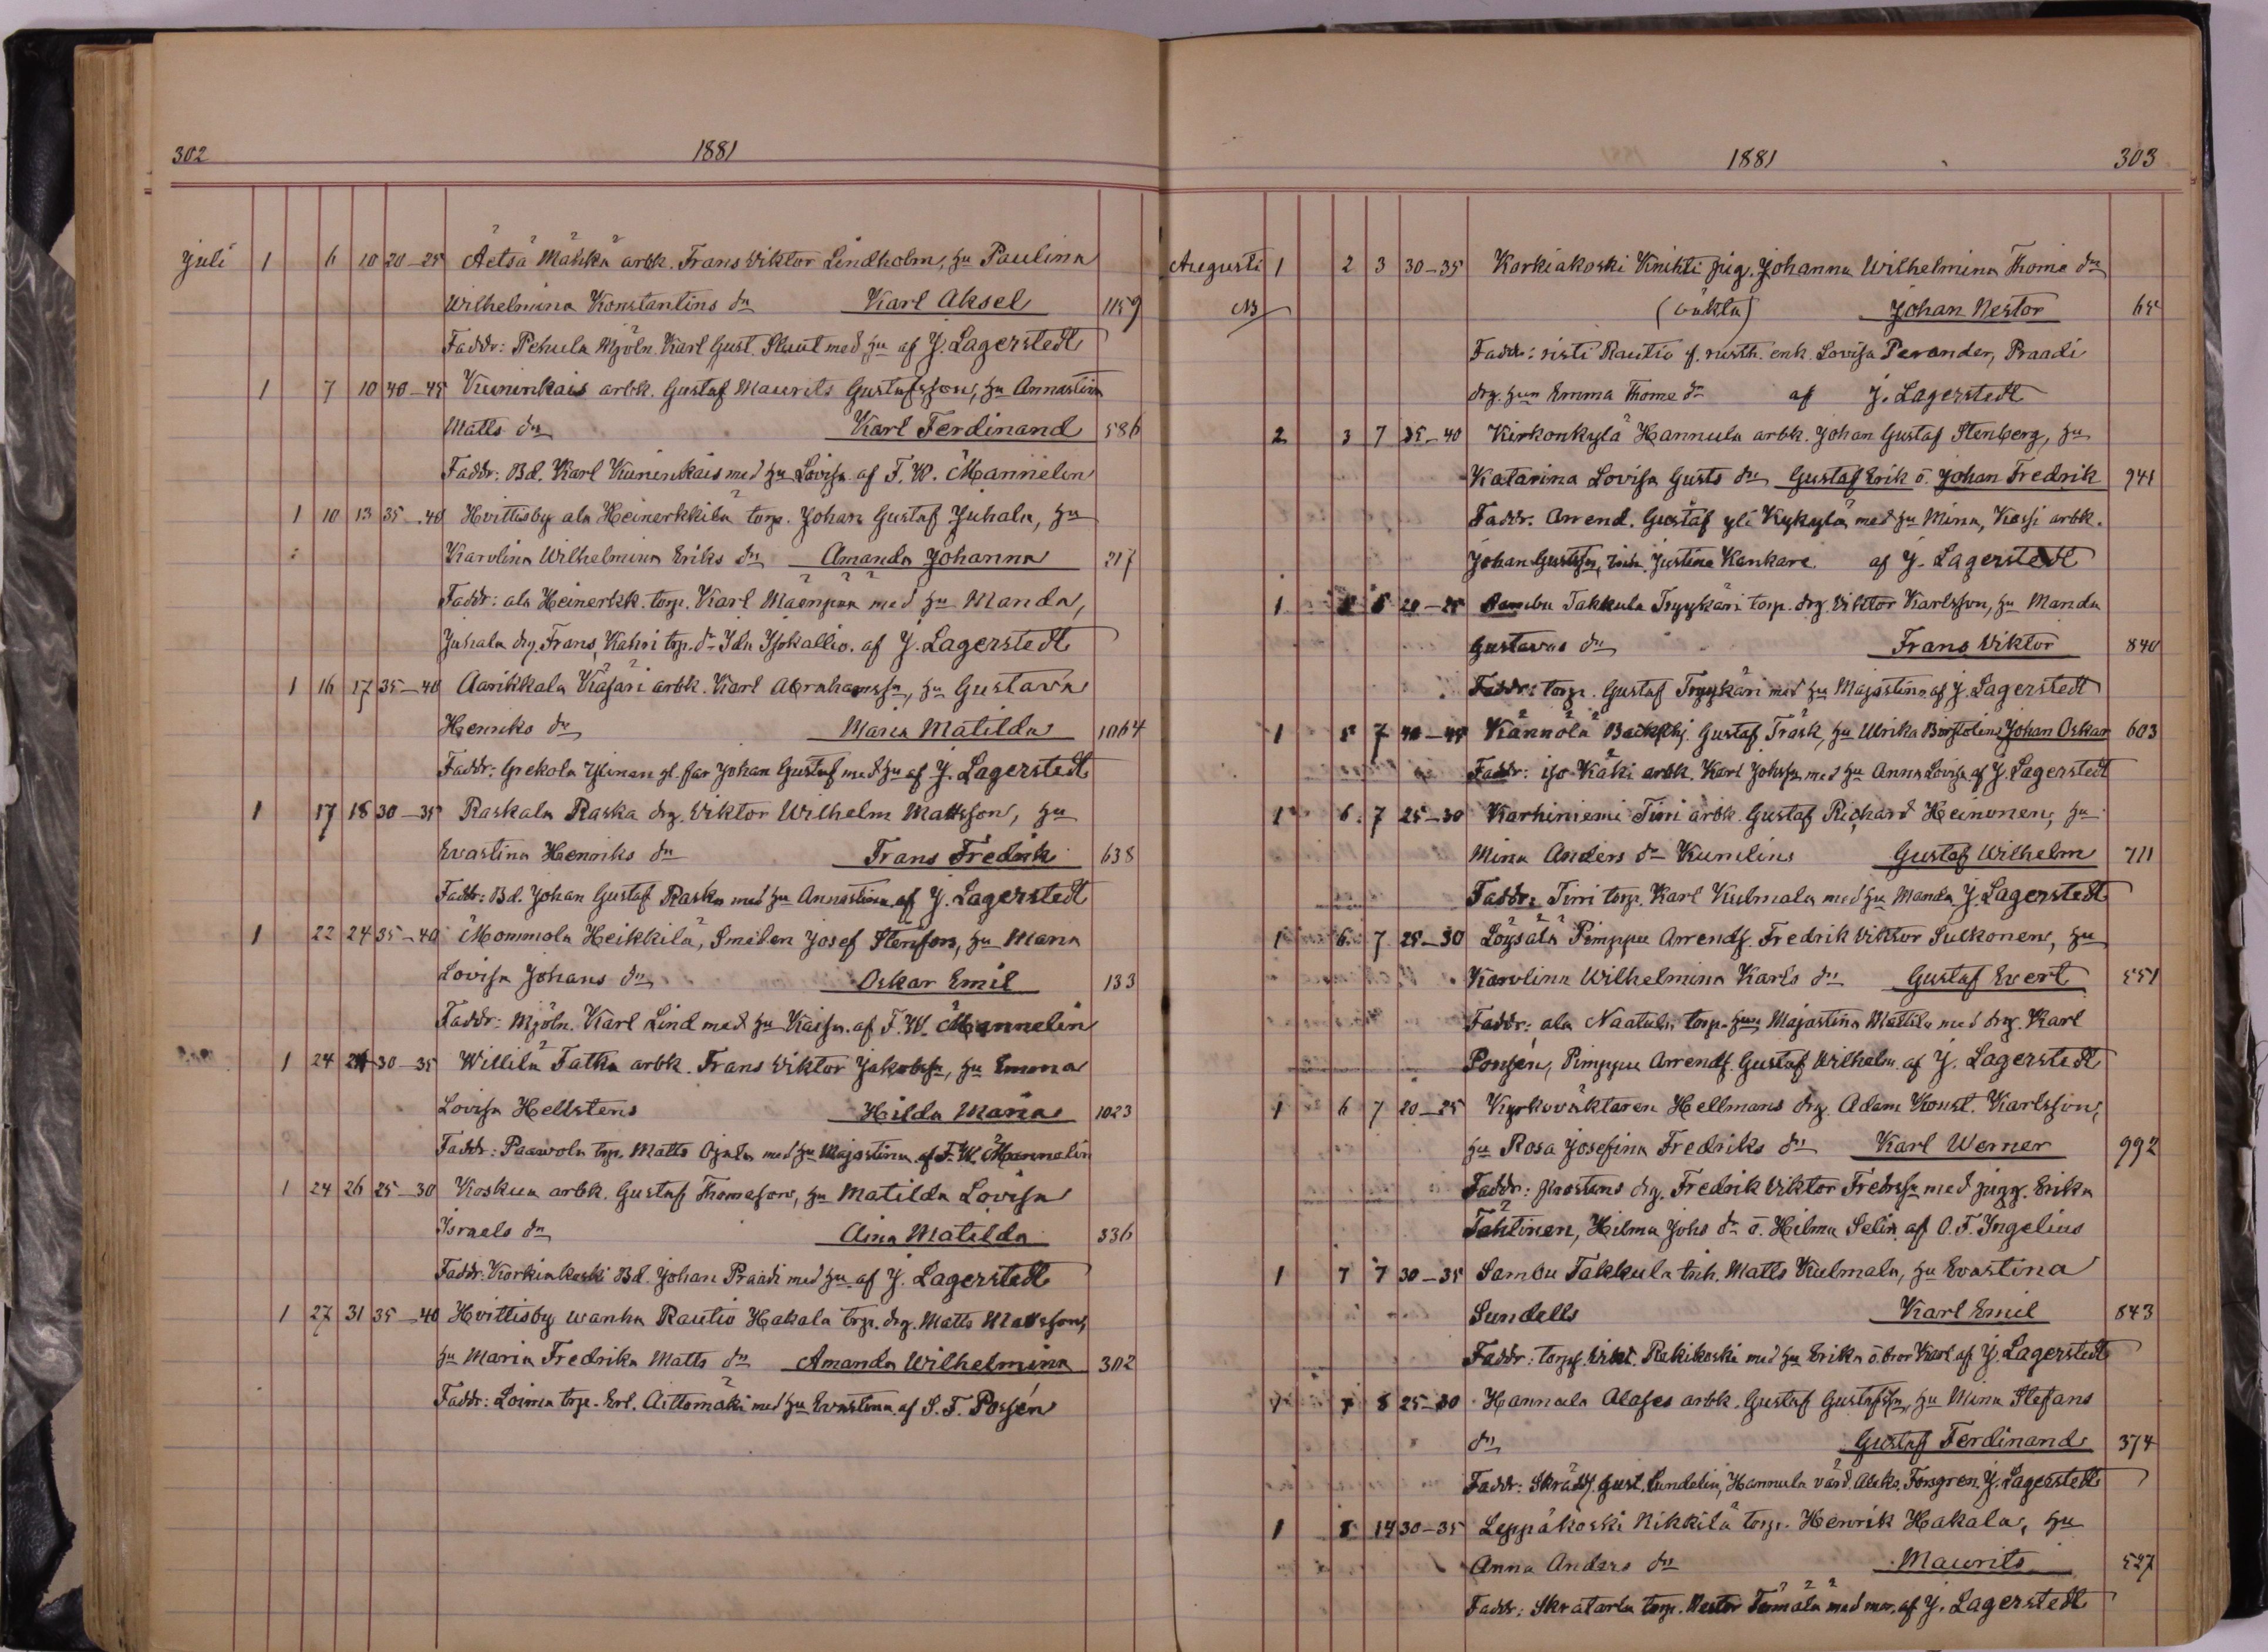 302 1881
Juli 1 6 10 20-25 Äetsä Mähkä arbk. Frans Viktor Lindholm, hu Paulina
Wilhelmina Konstantins dr Karl Aksel 1159
Faddr: Pehula Mjöln. Karl Gust. Slaut med hu af J. Lagerstedt
1 7 10 40-45 Kuninkais arbk. Gustaf Maurits Gustafsson, hu Annastina
Matts dr Karl Ferdinand 586
Faddr: Bd. Karl Kuninkais med hu Lovisa af F. W. Mannelin
1 10 13 35-40 Hvittisby ala Heinerkkilä torp. Johan Gustaf Juhala, hu
Karolina Wilhelmina Eriks dr Amanda Johanna 217
Faddr: ala Heinerkk. torp. Karl Mäenpää med hu Manda,
Juhala drg. Frans, Kahri trp. dr Ida Isokallio. af J. Lagerstedt
1 16 17 35-40 Aarikkala Käsäri arbk. Karl Abrahamssn, hu Gustava
Henriks dr Maria Matilda 1064
Faddr: Grekola Ylinen gl. far Johan Gustaf med hu af J. Lagerstedt
1 17 18 30-35 Raskala Raska drg. Viktor Wilhelm Mattsson, hu
Evastina Henriks dr Frans Fredrik 638
Faddr: Bd. Johan Gustaf Raska med hu Annastina af J. Lagerstedt
1 22 24 35-40 Mommola Heikkilä, Smeden Josef Stenfors, hu Maria
Lovisa Johans dr Oskar Emil 133
Faddr: Mjöln. Karl Lind med hu Kaisa. af F. W. Mannelin
1 24 24 30-35 Willilä Tatka arbk. Frans Viktor Jakobssn, hu Emma
Lovisa Hellstens Hilda Maria 1023
Faddr: Paawola trp. Matts Ojala med hu Majastina af F. W. Mannelin
1 24 26 25-30 Koskua arbk. Gustaf Thomasson, hu Matilda Lovisa
Israels dr Aina Matilda 336
Faddr: Korkiakoski Bd. Johan Praadi med hu af J. Lagerstedt
1 27 31 35-40 Hvittisby wanha Rautio Hakala trp. drg. Matts Mattsson,
hu Maria Fredrika Matts dr Amanda Wilhelmina 302
Faddr: Loima trp. Erl. Aittomäki med hu Evastina af S. F. Possén
1881 303
Augusti 1 2 3 30-35 Korkiakoski Knihti pig. Johanna Wilhelmina Thome dr
NB (oäkta) Johan Nestor 65
Faddr: risti Rautio f. rusth. enk. Lovisa Perander, Praadi
drg. hun Emma Thome dr af J. Lagerstedt
2 3 7 35-40 Kirkonkylä Hannula arbk. Johan Gustaf Stenberg, hu
Katarina Lovisa Gusts dr Gustaf Erik o. Johan Fredrik 941
Faddr. Arrend. Gustaf yli Kykylä med hu Mina, Kossi arbk.
Johan Gustafsn, inh. Justina Kankare. af J. Lagerstedt
1 8 20-25 Sambu Takkula Tryykäri torp. drg. Viktor Karlsson, hu Manda
Gustavas dr Frans Viktor 840
Faddr: torp. Gustaf Tryykäri med hu Majastina af J. Lagerstedt
1 5 7 40-45 Kännölä Gustaf Träsk, hu Ulrika Johan Oskar 603
Faddr: iso-Käki arbk. Karl Johssn med hu Anna Lovisa af J. Lagerstedt
1 6 7 25-30 Karhiniemi Timi arbk. Gustaf Richard Heinonen, hu
Mina Anders dr Kumlins Gustaf Wilhelm 711
Faddr: Timi torp. Karl Kulmala med hu Manda J. Lagerstedt
1 6 7 25-30 Löysälä Pimppu Arrendf. Fredrik Viktor Sulkonen, hu
Karolina Wilhelmina Karls dr Gustaf Evert 551
Faddr: ala Naatula torp. hun Majastina Mattila med drg. Karl
Ponsén, Pimppu Arrendf. Gustaf Wilhelm af J. Lagerstedt
1 6 7 20-25 Kyrkovaktaren Hellmans drg. Adam Konst. Karlsson,
hu Rosa Josefina Fredriks dr Karl Werner 992
Faddr: prostens drg. Fredrik Viktor Fredrssn med pigg. Erika
Tähtinen, Hilma Johs dr o. Hilma Selin af O. F. Ingelius
1 7 7 30-35 Sambu Takkula inh. Matts Kulmala, hu Evastina
Sundells Karl Emil 843
Faddr: torpf. Vikt. Rakikoski med hu Erika o. bror Karl af J. Lagerstedt
1 7 8 25-30 Hannula Alases arbk. Gustaf Gustafssn, hu Mina Stefans
dr Gustaf Ferdinand 374
Faddr: Skräddf. Gust. Lundelin, Hannula värd. Aleks. Forsgren. J. Lagerstedt
1 8 14 30-35 Leppäkoski Nikkilä torp. Henrik Hakala, hu
Anna Anders dr Maurits 527
Faddr: Skratarla torp. Nestor med mor. af J. Lagerstedt